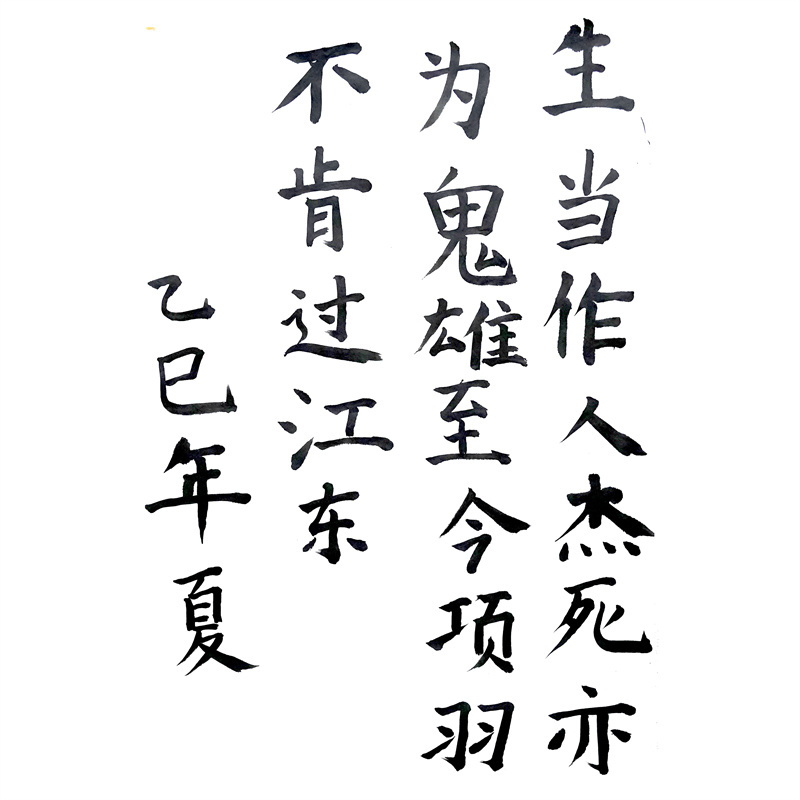 生当作人杰死亦
为鬼雄至今项羽
不肯过江东
乙巳年夏